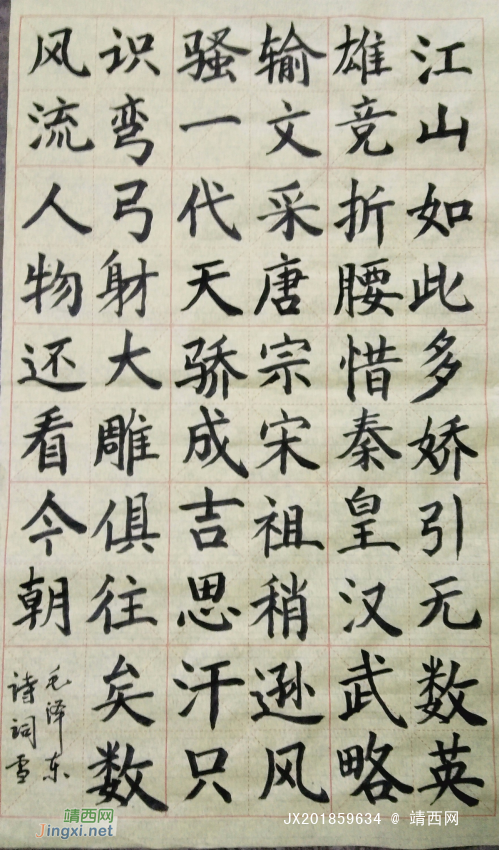 江山如此多娇引无数英
雄竞折腰惜秦皇汉武略
输文采唐宗宋祖稍逊风
骚一代天骄成吉思汗只
识弯弓射大雕俱往矣数
风流人物还看今朝
毛泽东
诗词雪
靖西网
Jingxi.net
JX201859634 @ 靖西网